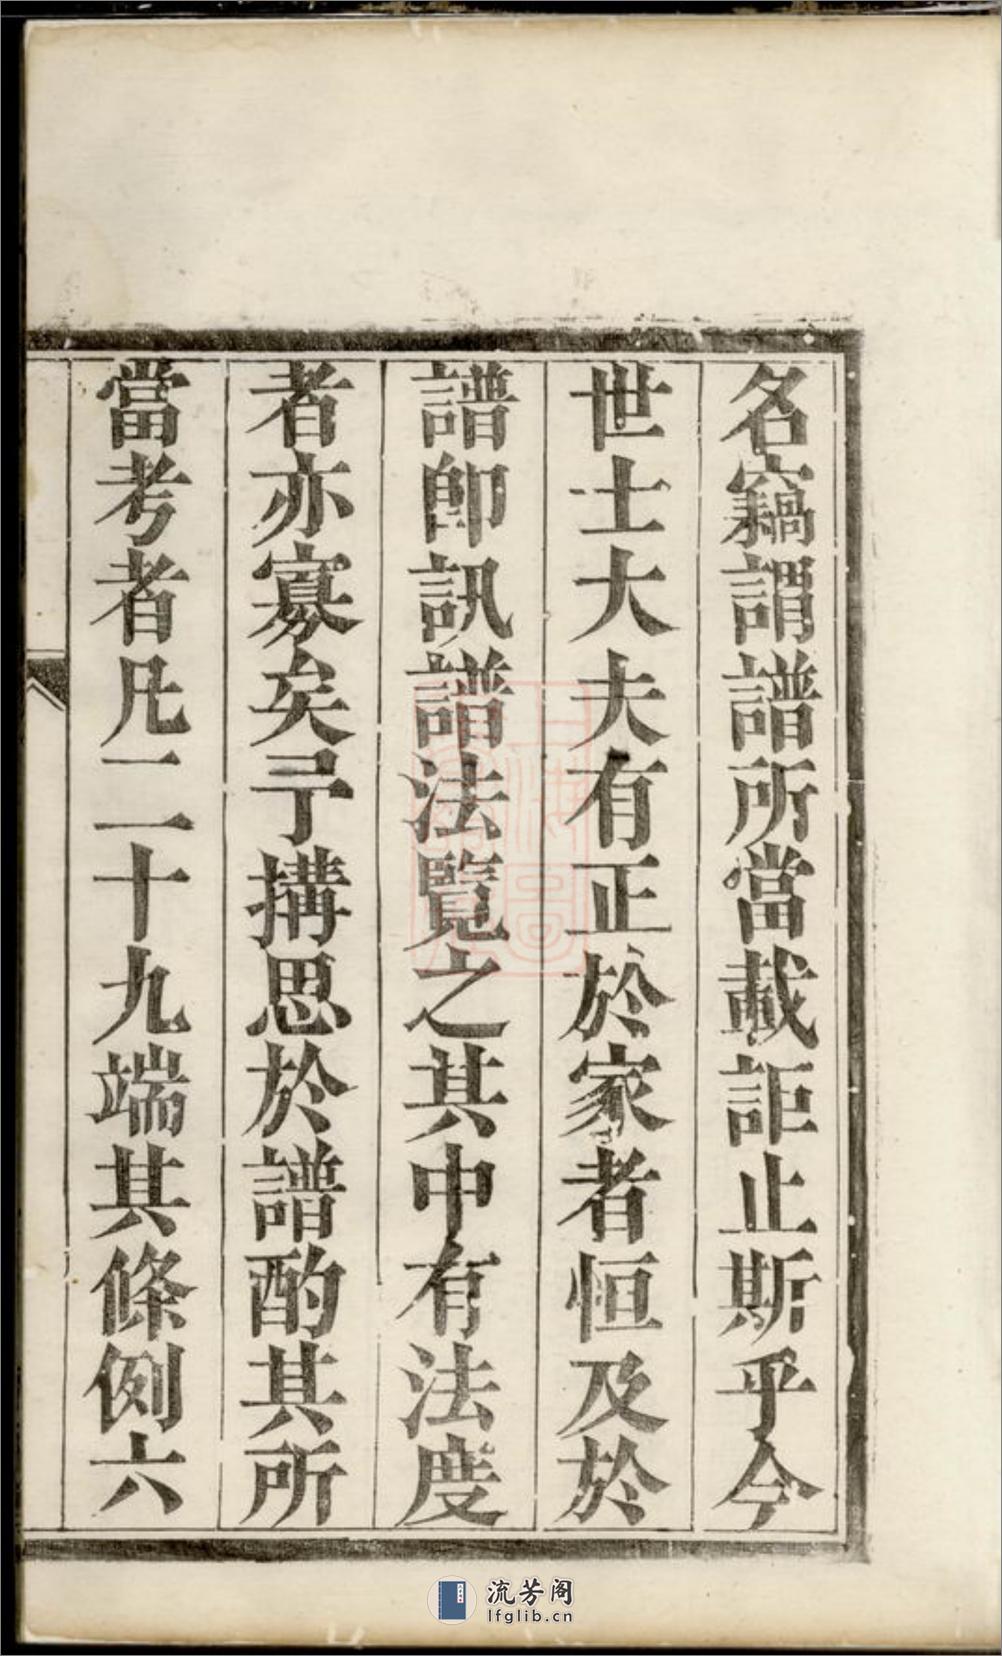 名竊謂譜所當載詎止斯乎今
世士大夫有正於家者恒及於
譜卽訊譜法覽之其中有法度
者亦寡矣予搆思於譜酌其所
當考者凡二十九端其條例六
流芳阁
lfglib.cn